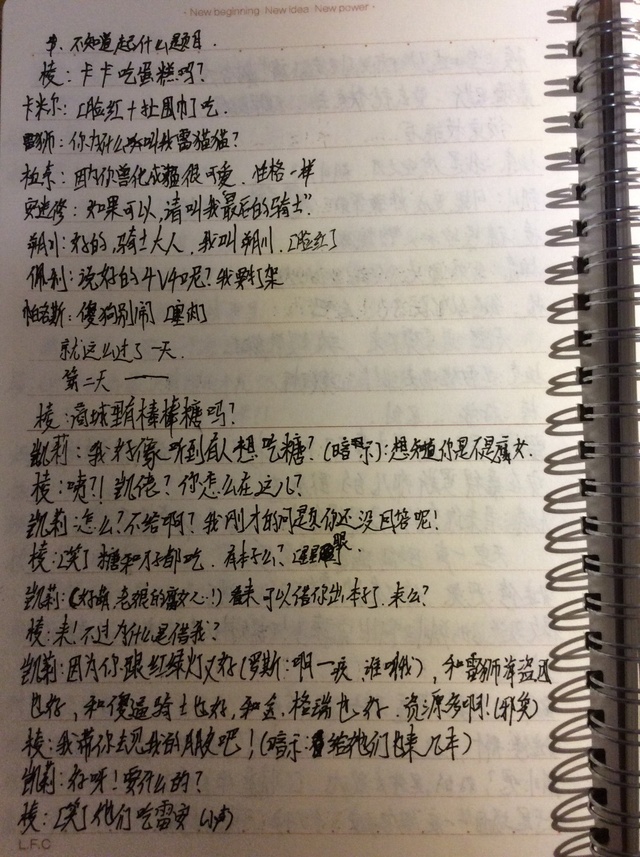 · New beginning New idea New power ·
章. 不知道起什么题目.
棱: 卡卡吃蛋糕吗?
卡米尔: [脸红+扯围巾]吃.
雷狮: 你为什么叫我雷猫猫?
因为你兽化成猫很可爱, 性格一样
安迷修: 如果可以, 请叫我“最后的骑士”.
朔川: 好的, 骑士大人, 我叫朔川. [脸红]
佩利: 说好的4V4呢? 我要打架
帕洛斯: 傻狗别闹 [塞肉]
就这么过了一天.
第二天 ——
棱: 商城里有棒棒糖吗?
凯莉: 我好像听到有人想吃糖? (暗示): 想知道你是不是腐女.
棱: 咦?! 凯佬? 你怎么在这儿?
凯莉: 怎么? 不给啊? 我刚才的问题你还没回答呢!
棱: [笑] 糖和刀子都吃. 有本子么?
凯莉: (好萌 老狼的腐女心!) 看来可以借你出本了. 来么?
棱: 来! 不过为什么是借我?
凯莉: 因为你跟红绿灯又好(罗斯: 啊一嚏, 谁咒我), 和雷狮海盗团
也好, 和傻逼骑士也好, 和金, 格瑞也好. 资源多啊! (邪笑)
棱: 我带你去见我的朋友吧! (暗示: 给他们也来几本)
凯莉: 好呀! 要什么的?
棱: [笑] 他们吃雷安 (小声)
L.F.C